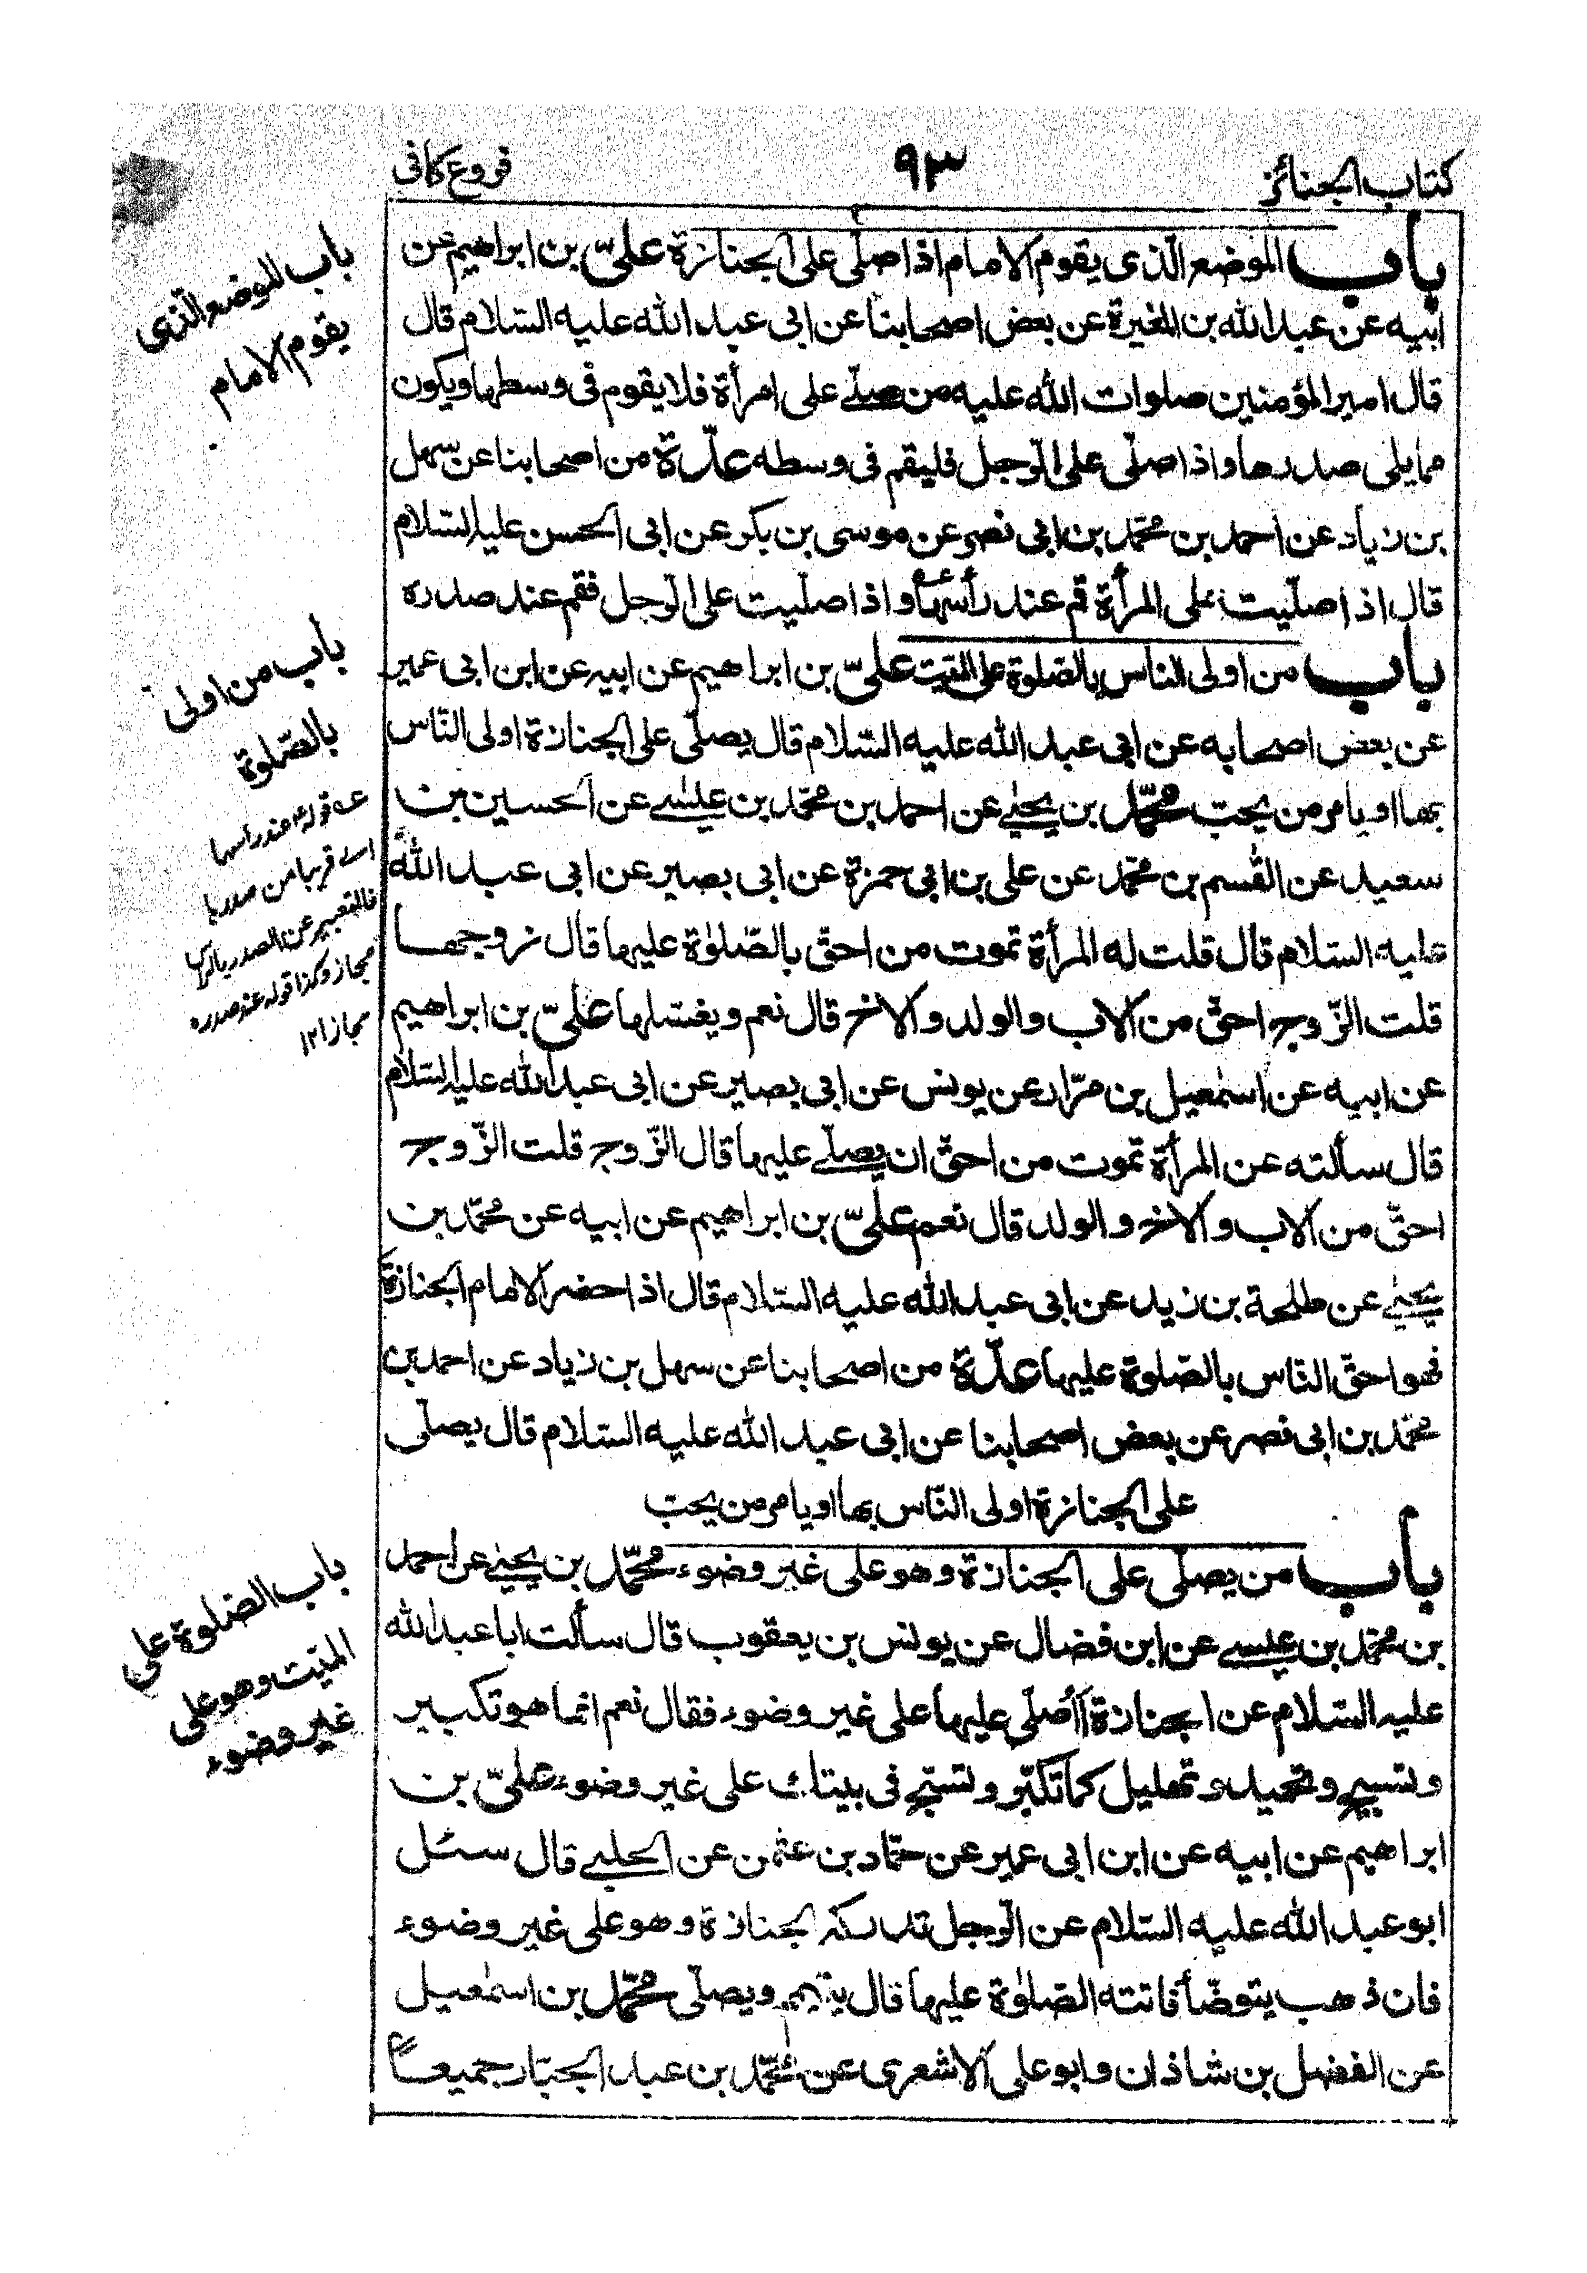 كتاب الجنائز
۹۳
فروع كافى
باب الموضع الّذى يقوم الامام اذا صلّى على الجنازة علىّ بن ابراهيم عن
ابيه عن عبد الله بن المغيرة عن بعض اصحابنا عن ابى عبد الله عليه السّلام قال
قال امير المؤمنين صلوات الله عليه من صلّى على امرأة فلا يقوم فى وسطها ويكون
مما يلى صدرها واذا صلّى على الرّجل فليقم فى وسطه عدّة من اصحابنا عن سهل
بن زياد عن احمد بن محمّد بن ابى نصر عن موسى بن بكر عن ابى الحسن عليه السّلام
قال اذا صلّيت على المرأة قم عند رأسها واذا صلّيت على الرّجل فقم عند صدره
باب من اولى الناس بالصّلوة على الميّت علىّ بن ابراهيم عن ابيه عن ابن ابى عمير
عن بعض اصحابه عن ابى عبد الله عليه السّلام قال يصلّى على الجنازة اولى النّاس
بها او يامر من يحبّ محمّد بن يحيٰى عن احمد بن محمّد بن عيسٰى عن الحسين بن
سعيد عن القٰسم بن محمّد عن على بن ابى حمزة عن ابى بصير عن ابى عبد الله
عليه السّلام قال قلت له المرأة تموت من احقّ بالصّلوٰة عليها قال زوجها
قلت الزّوج احقّ من الاب والولد والاخ قال نعم ويغسّلها علىّ بن ابراهيم
عن ابيه عن اسمٰعيل بن مرّار عن يونس عن ابى بصير عن ابى عبد الله عليه السّلام
قال سألته عن المرأة تموت من احقّ ان يصلّى عليها قال الزّوج قلت الزّوج
احقّ من الاب والاخ والولد قال نعم علىّ بن ابراهيم عن ابيه عن محمّد بن
يحيٰى عن طلحة بن زيد عن ابى عبد الله عليه السّلام قال اذا حضر الامام الجنازة
فهو احقّ النّاس بالصّلوة عليها عدّة من اصحابنا عن سهل بن زياد عن احمد بن
محمّد بن ابى نصر عن بعض اصحابنا عن ابى عبد الله عليه السّلام قال يصلّى
على الجنازة اولى النّاس بها او يامر من يحبّ
باب من يصلّى على الجنازة وهو على غير وضوء محمّد بن يحيٰى عن احمد
بن محمّد بن عيسى عن ابن فضال عن يونس بن يعقوب قال سألت ابا عبد الله
عليه السّلام عن الجنازة أأصلّى عليها على غير وضوء فقال نعم انما هو تكبير
وتسبيح وتحميد وتهليل كما تكبّر وتسبّح فى بيتك على غير وضوء علىّ بن
ابراهيم عن ابيه عن ابن ابى عمير عن حمّاد بن عثمٰن عن الحلبى قال سئل
ابو عبد الله عليه السّلام عن الرّجل تدركه الجنازة وهو على غير وضوء
فان ذهب يتوضّأ فاتته الصّلوٰة عليها قال يتيمم ويصلّى محمّد بن اسمٰعيل
عن الفضل بن شاذان وابو على الاشعرى عن محمّد بن عبد الجبّار جميعاً
باب الموضع الّذى
يقوم الامام
باب من اولى
بالصّلوة
عه قوله ع عند راسها
اى قريبا من صدرها
فالتعبير عن الصدر بالراس
مجاز وكذا قوله عند صدره
مجاز ١٢
باب الصّلوة على
الميّت وهو على
غير وضوء